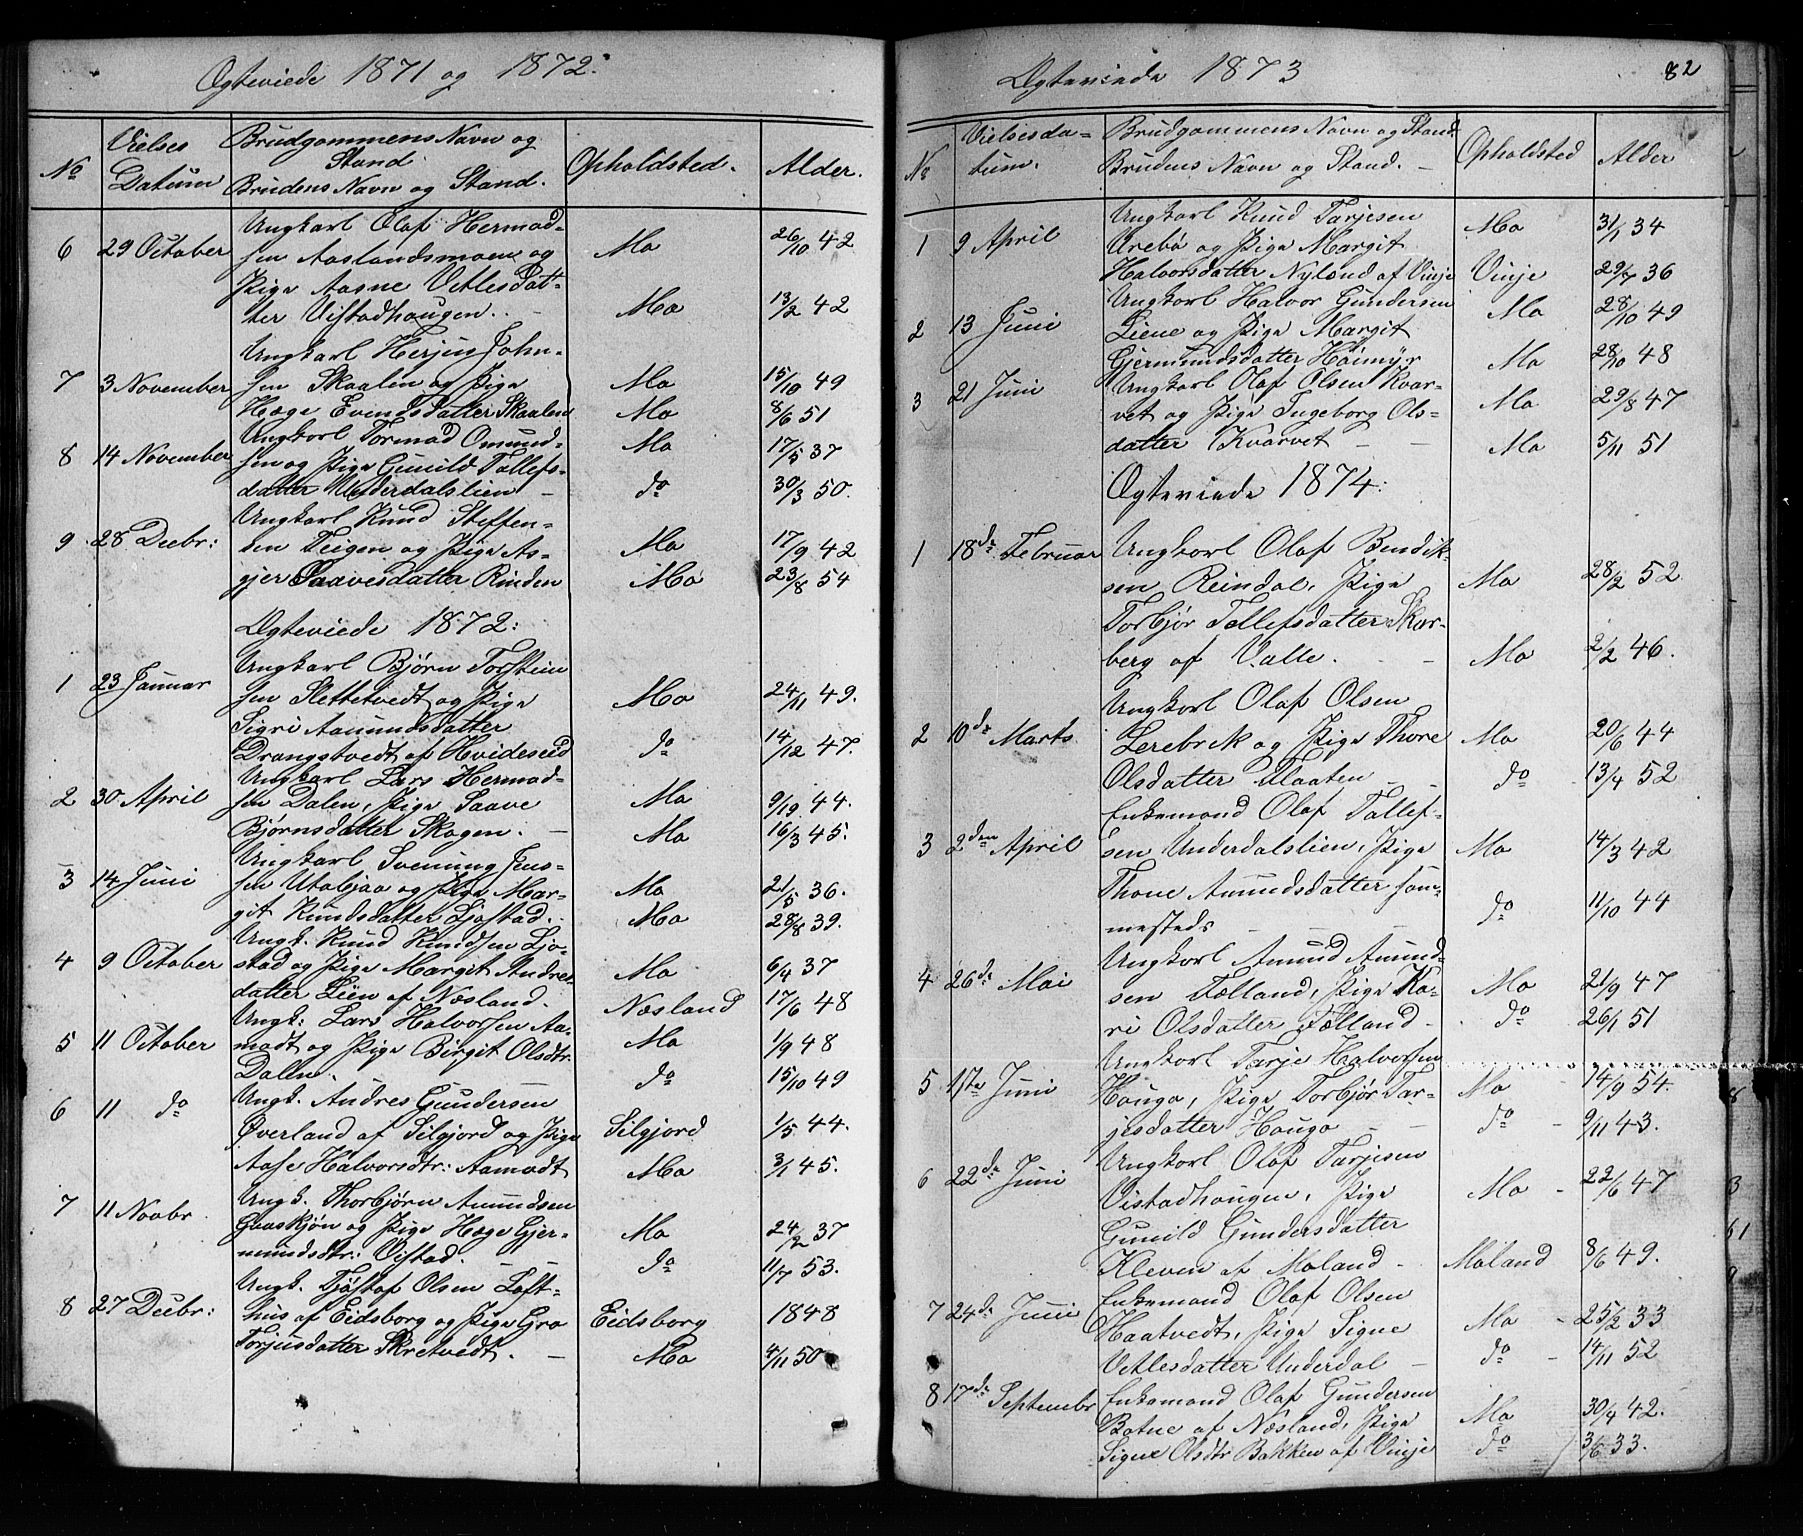 Ægteviede 1871 og 1872.
No
Vielses Datum
Brudgommens Navn og Stand. Brudens Navn og Stand.
Opholdsted.
Alder.
6 29 October Ungkarl Olaf Hermod-
sen Aaslandsmoen og Mo 26/10 42
Pige Aasne Vetlesdat-
ter Vistadhaugen. Mo 13/2 42
Ungkarl Herjus John-
7 3 November sen Skaalen og Pige Mo 15/10 49
Hæge Evendsdatter Skaalen Mo 8/6 51
Ungkarl Tormod Omund- Mo 17/5 37
8 14 November sen og Pige Gunild Tallefs-
datter Underdalslien - do 30/3 50.
Ungkarl Knud Steffen-
9 28 Decbr: sen Teigen og Pige As- Mo 17/9 42
gjer Saavesdatter Rinden Mo 23/8 54
Ægteviede 1872:
Ungkarl Bjørn Torstein
1 23 Januar sen Slettetvedt og Pige Mo 24/11 49.
Sigri Aamundsdatter
Drangstvedt af Hvideseid do 14/12 47.
Ungkarl Lars Hermod-
2 30 April sen Dalen, Pige Saave Mo 9/10 44.
Bjørnsdatter Skogen. - Mo 16/3 45.
Ungkarl Svenung Jens-
3 14 Juni sen Utabjaa og Pige Mar- Mo 21/5 36.
git Knudsdatter Ljostad. Mo 28/8 39.
Ungk. Knud Knudsen Ljo-
4 9 October stad og Pige Margit Andres- Mo 6/4 37
datter Lien af Næsland. Næsland 17/6 48
Ungk: Lars Halvorsen Aa-
5 11 October modt og Pige Birgit Olsdtr. Mo 1/9 48
Dalen. do 15/10 49
Ungk. Andres Gundersen
6 11 do Øverland af Silgjord og Pige Silgjord 1/5 44.
Aase Halvorsdtr: Aamodt Mo 3/1 45.
Ungk. Thorbjørn Amundsen
7 11 Novbr Gaaskjøn og Pige Hæge Gjer- Mo 24/2 37
mundsdtr: Vistad. do 11/7 53.
Ungk. Tjøstaf Olsen Loft-
8 27 Decbr: hus af Eidsborg og Pige Gro Eidsborg 1848
Torjusdatter Skretvedt. - Mo 4/11 50
Ægteviede 1873
82
No
Vielsesda-
tum.
Brudgommens Navn og Stand
Brudens Navn og Stand. -
Opholdsted
Alder
1 9 April Ungkarl Knud Tarjesen Mo 31/1 34
Urebø og Pige Margit
Halvorsdatter Nyland af Vinje Vinje 29/7 36
Ungkarl Halvor Gundersen Mo 28/10 49
2 13 Juni Liene og Pige Margit
Gjermundsdatter Høimyr Mo 28/10 48
3 21 Juni Ungkarl Olaf Olsen Kvar-
vet og Pige Ingeborg Ols- Mo 29/8 47
datter Kvarvet - - Mo 5/11 51
Ægteviede 1874:
1 18de Februar Ungkarl Olaf Bendik-
sen Reindal, Pige Mo 28/2 52
Torbjør Tellefsdatter Skar-
berg af Valle. - Mo 2/2 46.
Ungkarl Olaf Olsen
2 10de Marts Lerebrek og Pige Thore Mo 20/6 44
Olsdatter Flaaten - do - 13/4 52
Enkemand Olaf Tallef-
3 2den April sen Underdalslien, Pige Mo 14/3 42
Thone Amundsdatter sam-
mesteds - - - do 11/10 44
Ungkarl Amund Amund-
4 26de Mai sen Tælland, Pige Ka- Mo 21/9 47
ri Olsdatter Tælland - do 26/1 51
Ungkarl Tarje Halvorsen
5 17de Juni Hauga, Pige Torbjør Tar- Mo - 14/9 54.
jesdatter Hauga - - do - 9/11 43.
Ungkarl Olaf Tarjesen
6 22de Juni Vistadhaugen, Pige Mo - 22/6 47
Gunild Gundersdatter
Kleven af Moland - Moland 8/6 49.
Enkemand Olaf Olsen
7 24de Juni Haatvedt, Pige Signe Mo - 25/2 33
Vetlesdatter Underdal - do - 14/11 52
8 17de Septembr Enkemand Olaf Gundersen
Botne af Næsland, Pige Mo 30/4 42.
Signe Olsdtr Bakken af Vinje do 3/6 33.